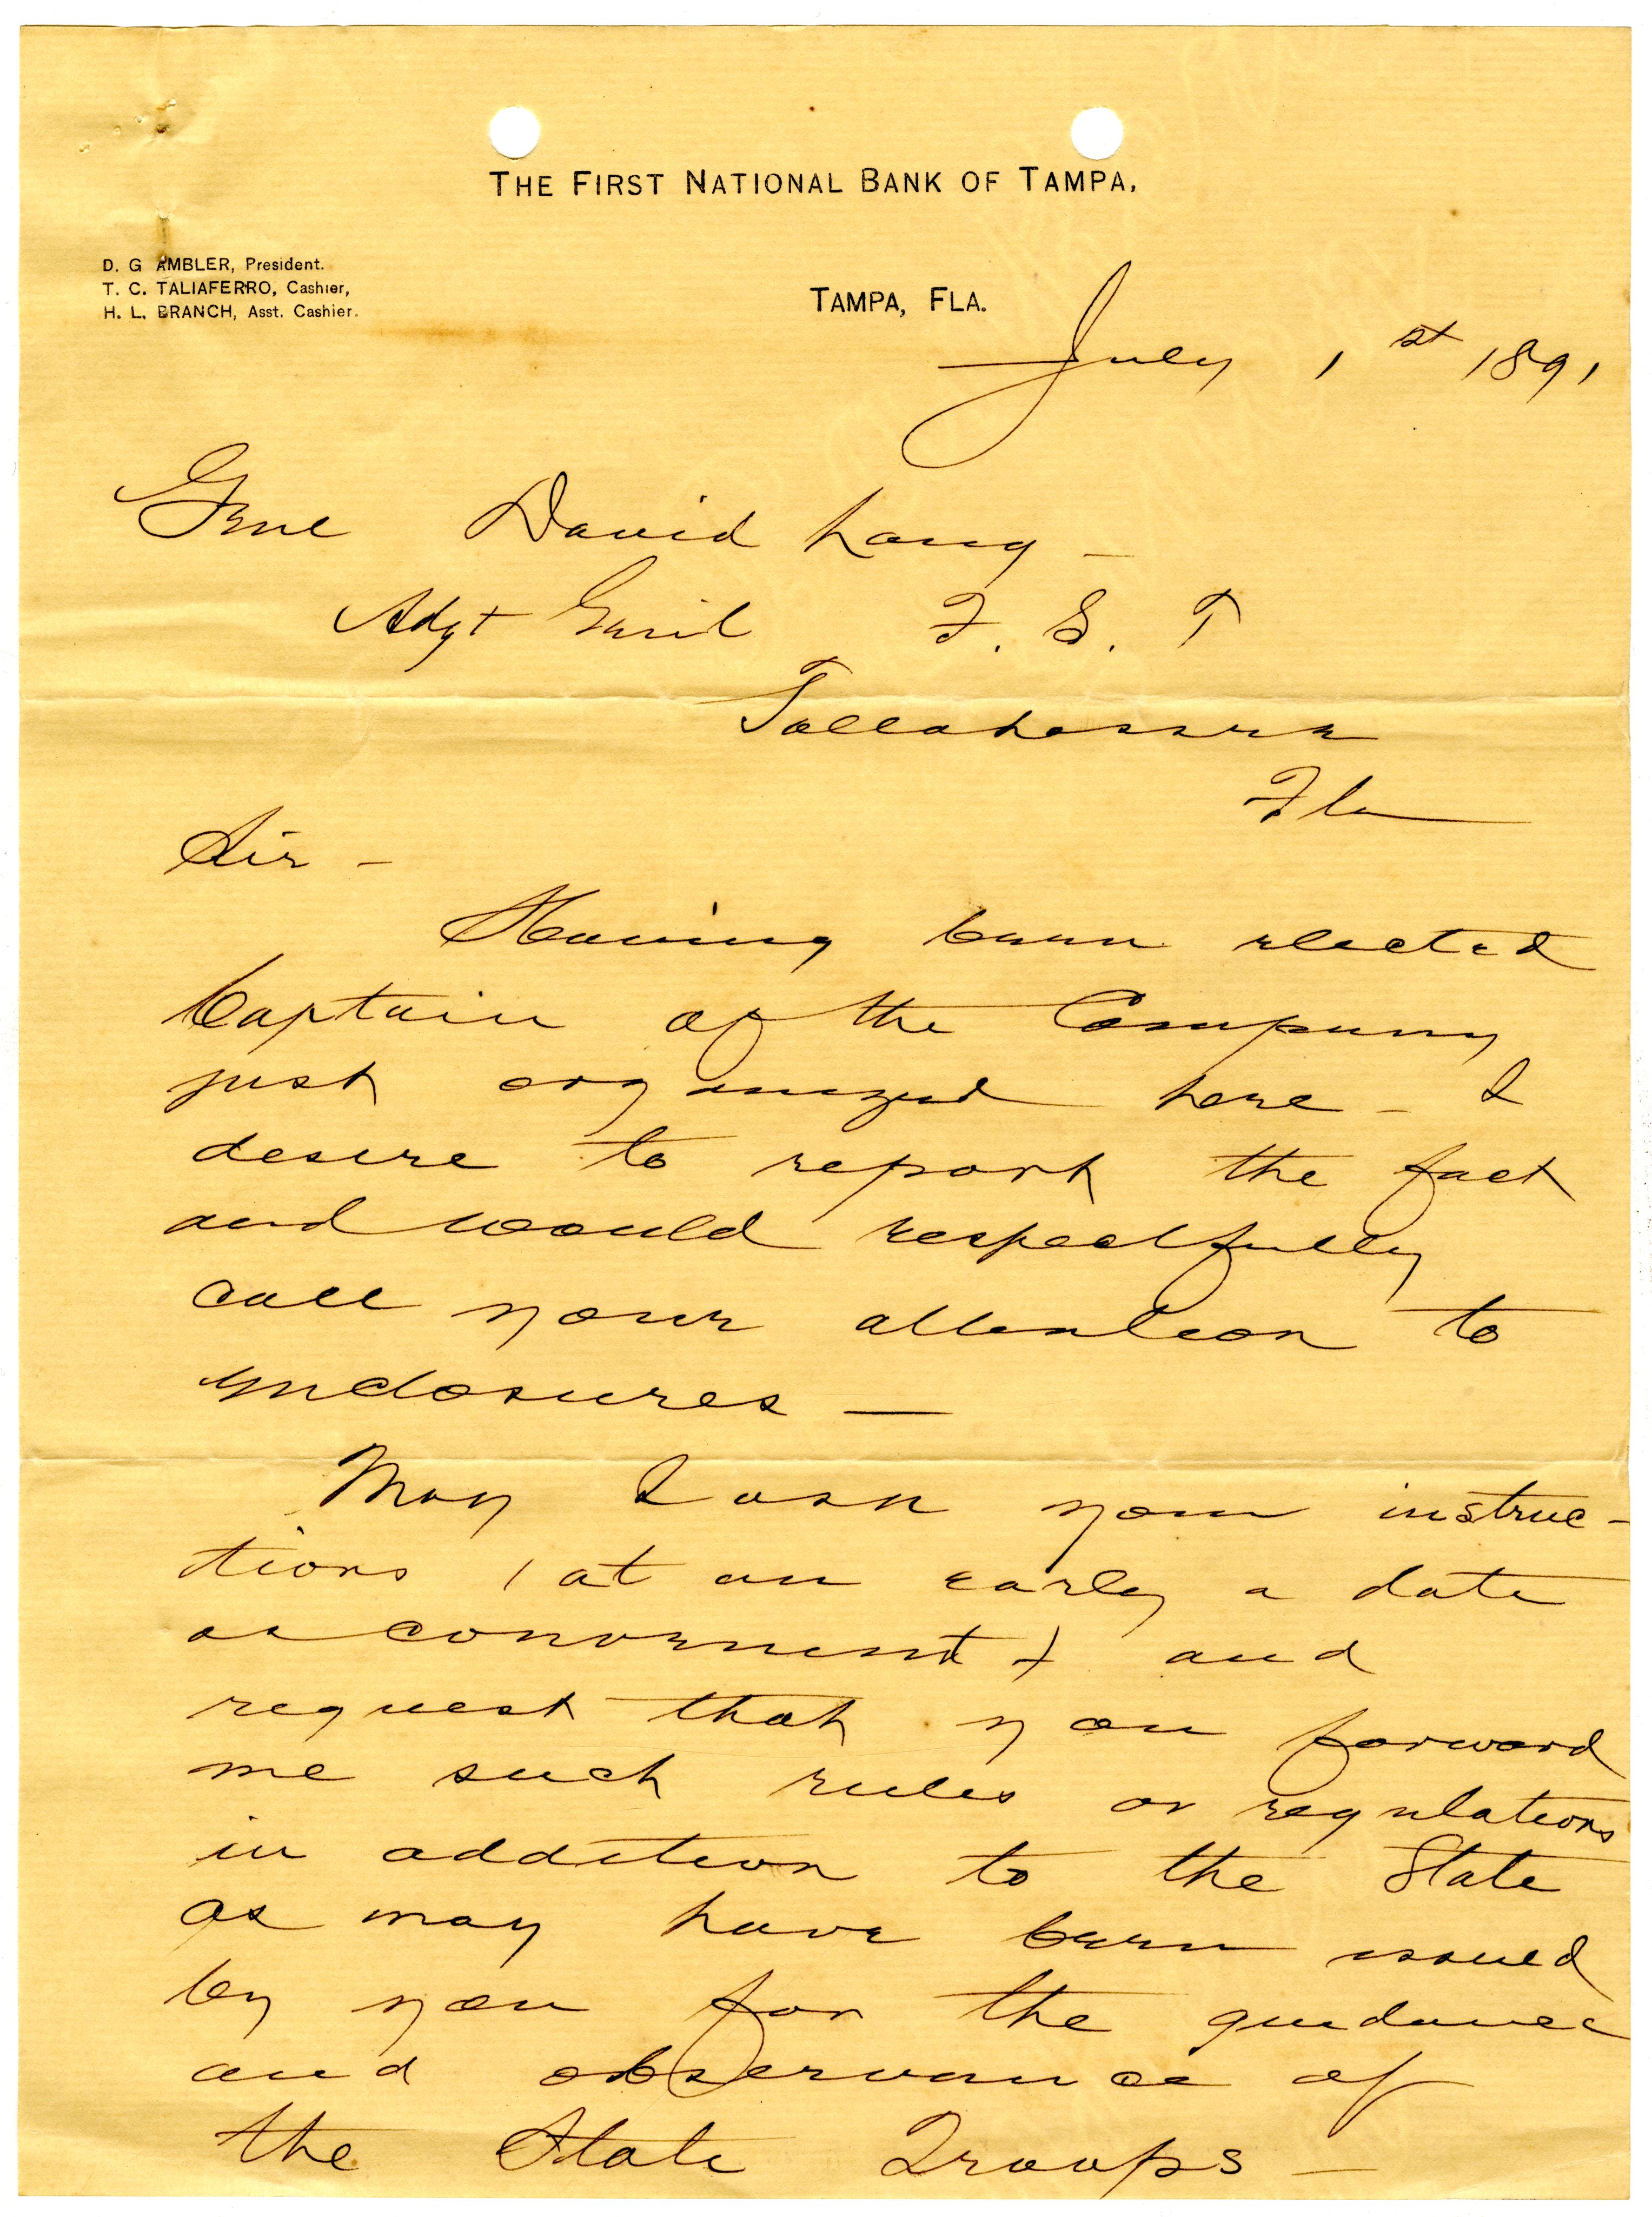 THE FIRST NATIONAL BANK OF TAMPA,
D. G AMBLER, President.
T. C. TALIAFERRO, Cashier,
H. L. BRANCH, Asst. Cashier.
TAMPA, FLA.
July 1st 1891
Genl David Lang -
Adgt Genl F. S. T
Tallahassee
Fla
Sir -
Having been elected
Captain of the Company
just organized here - I
desire to report the fact
and would respectfully
call your attention to
enclosures -
May I ask your instruc-
tions (at as early a date
as convenient) and
request that you forward
me such rules or regulations
in addition to the State
as may have been issued
by you for the guidance
and observance of
the State Troops -